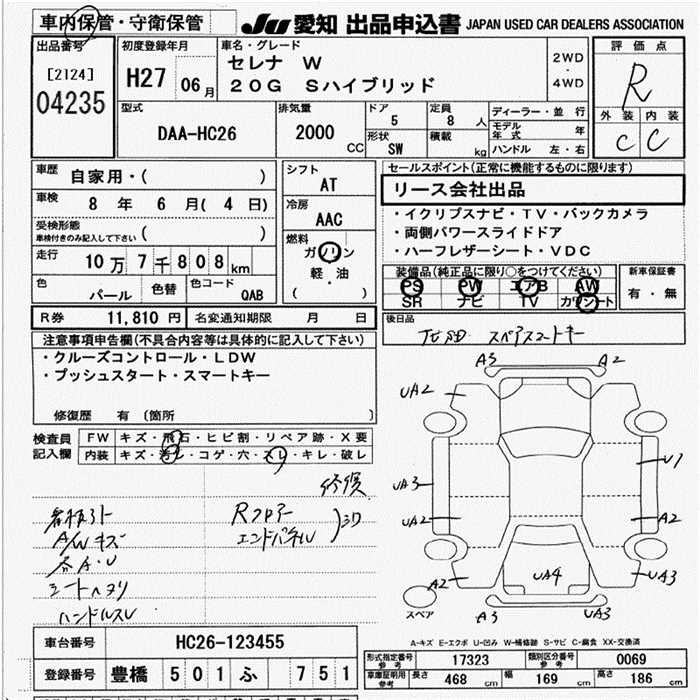 車内保管・守衛保管
JU 愛知 出品申込書 JAPAN USED CAR DEALERS ASSOCIATION
出品番号
[2124]
04235
初度登録年月
H27 06月
車名・グレード
セレナ W
20G Sハイブリッド
2WD
・
4WD
評価点
R
外装 内装
C C
型式
DAA-HC26
排気量
2000 CC
ドア
5
定員
8 人
形状
SW
積載
kg
ディーラー・並行
モデル年式 年
ハンドル 左・右
車歴
自家用・( )
車検
8 年 6 月( 4 日)
受検形態
車検付きのみ記入して下さい ( )
走行
10万7千808km
色
パール
色替
色コード
QAB
シフト
AT
冷房
AAC
燃料
ガソリン
軽・油
( )
セールスポイント(正常に機能するものに限ります)
リース会社出品
・イクリプスナビ・TV・バックカメラ
・両側パワースライドドア
・ハーフレザーシート・VDC
装備品(純正品に限り○をつけてください)
PS PW エアB AW
SR ナビ TV カワシート
新車保証書
有・無
R券 11,810 円 名変通知期限 月 日
後日品
スペアスマートキー
注意事項申告欄(不具合内容等は具体的に記入して下さい)
・クルーズコントロール・LDW
・プッシュスタート・スマートキー
修復歴 有 〔箇所 〕
検査員記入欄
FW キズ・飛石・ヒビ割・リペア跡・X要
内装 キズ・汚レ・コゲ・穴・スレ・キレ・破レ
修復
看板跡
A/Wキズ
各A・U
シートヘタリ
ハンドルスレ
Rフロアー
エンドパネル
A3 A2
UA2
U1
UA3
UA2 A2
A2 UA4 UA3
スペア
A3 UA3
A-キズ E-エクボ U-凹み W-補修跡 S-サビ C-腐食 XX-交換済
車台番号 HC26-123455
登録番号 豊橋 501 ふ 751
形式指定番号 参考 17323 類別区分番号 参考 0069
車庫証明用 参考 長さ 468 cm 幅 169 cm 高さ 186 cm